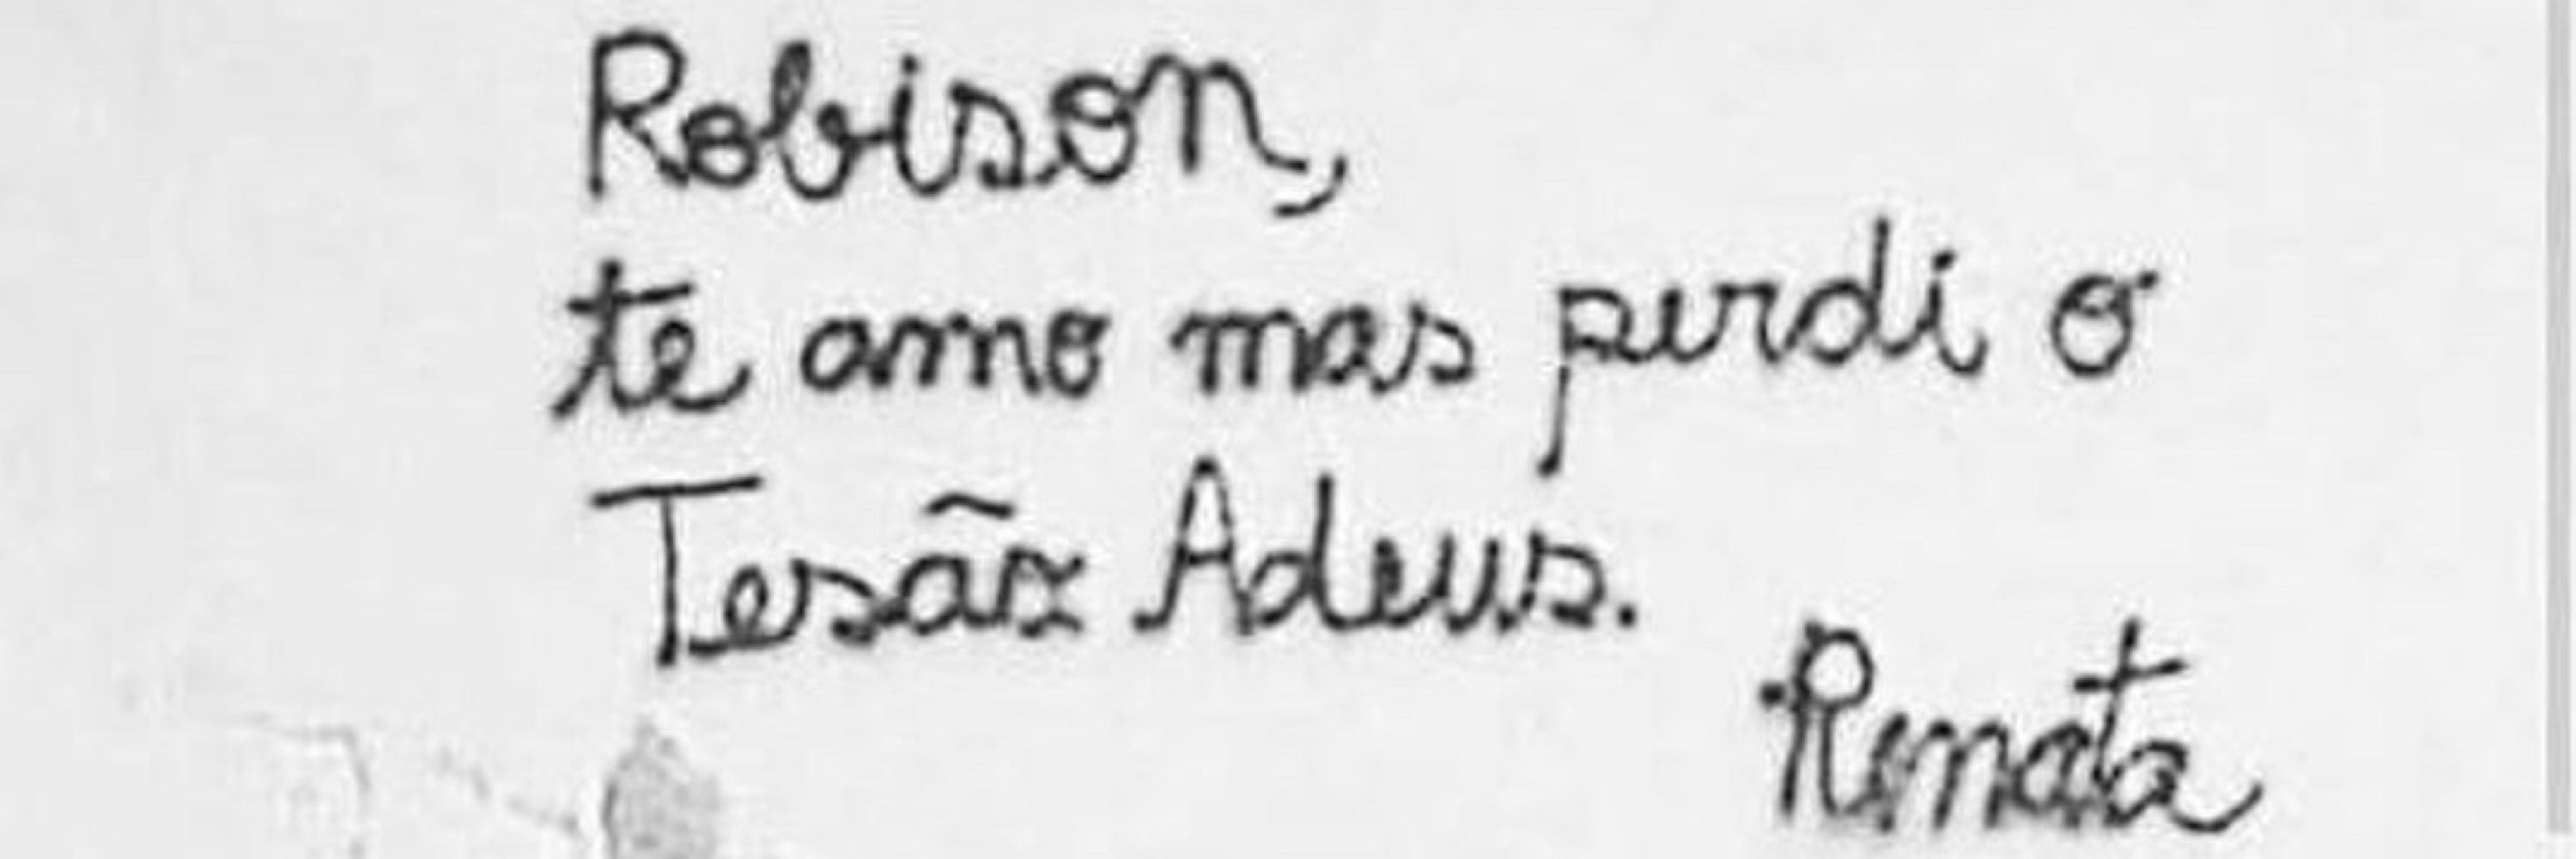 Robison,
te amo mas perdi o
Tesão Adeus.
Renata